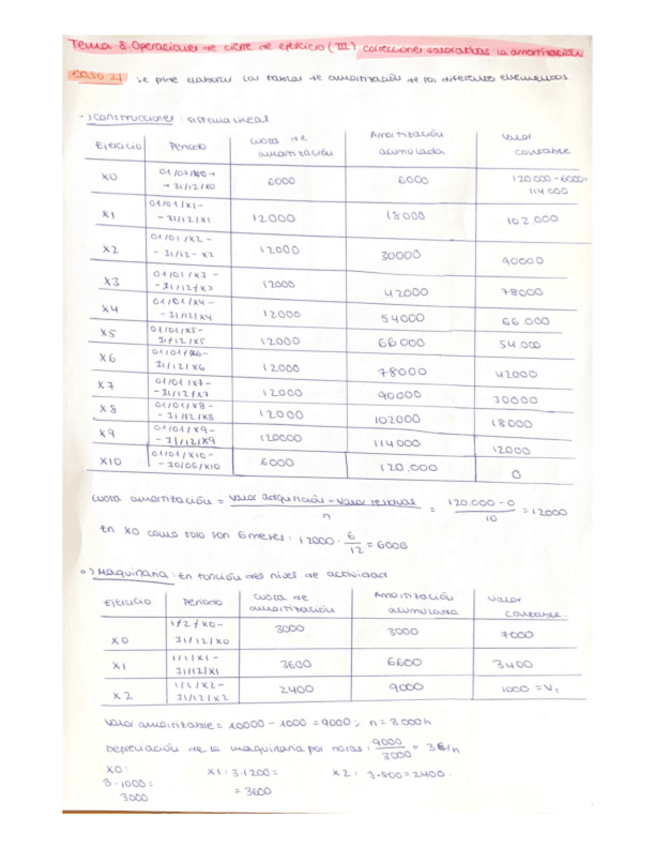 Tema 8. Operaciones de cierre de ejercicio (III). correcciones valorativas: la amortización
CASO 21 Se pide elaborar las tablas de amortización de los diferentes elementos.
·) Construcciones: sistema lineal
Ejercicio Periodo Cuota de amortización Amortización acumulada Valor contable
X0 01/07/X0 → → 31/12/X0 6000 6000 120.000 - 6000 = 114.000
X1 01/01/X1 - - 31/12/X1 12000 18000 102.000
X2 01/01/X2 - - 31/12-X2 12000 30000 90000
X3 01/01/X3 - - 31/12/X3 12000 42000 78000
X4 01/01/X4 - - 31/12/X4 12000 54000 66.000
X5 01/01/X5 - 31/12/X5 12000 66000 54.000
X6 01/01/X6 - 31/12/X6 12000 78000 42000
X7 01/01/X7 - - 31/12/X7 12000 90000 30000
X8 01/01/X8 - - 31/12/X8 12000 102000 18000
X9 01/01/X9 - - 31/12/X9 120000 114000 12000
X10 01/01/X10 - - 30/06/X10 6000 120.000 0
Cuota amortización = valor adquisición - valor residual / n = 120.000 - 0 / 10 = 12000
En X0 como solo son 6 meses: 12000 · 6/12 = 6000
·) Maquinaria: En función del nivel de actividad
Ejercicio Periodo Cuota de amortización Amortización acumulada Valor contable.
X0 1/2/X0 - 31/12/X0 3000 3000 7000
X1 1/1/X1 - 31/12/X1 3600 6600 3400
X2 1/1/X2 - 31/12/X2 2400 9000 1000 = Vr
Valor amortizable = 10000 - 1000 = 9000; n = 3000h
Depreciación de la maquinaria por horas: 9000/3000 = 3€/h
X0: X1: 3·1200 = X2: 3·800 = 2400.
3·1000 = = 3600
3000